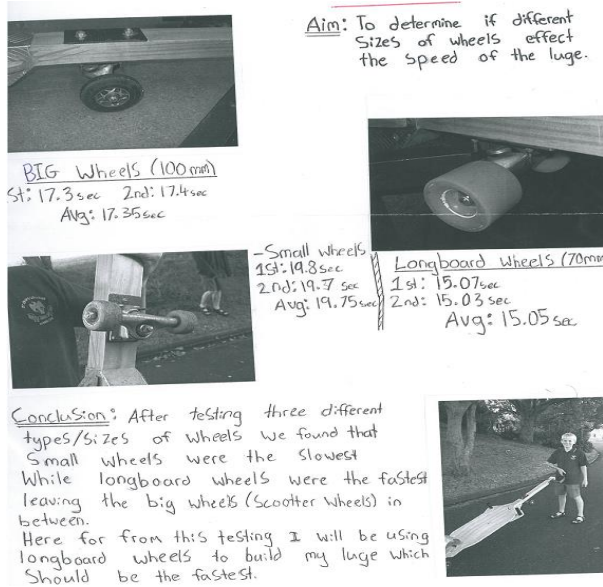 Aim: To determine if different
sizes of wheels effect
the speed of the luge.
BIG Wheels (100mm)
St: 17.3sec 2nd: 17.4sec
Avg: 17.35sec
-Small wheels
1st: 19.8sec
2nd: 19.7 sec
Avg: 19.75sec
Longboard wheels (70mm
1st: 15.07sec
2nd: 15.03 sec
Avg: 15.05 sec
Conclusion: After testing three different
types/sizes of wheels we found that
Small wheels were the slowest
While longboard wheels were the fastest
leaving the big wheels (Scootter Wheels) in
between.
Here for from this testing I will be using
longboard wheels to build my luge which
should be the fastest.